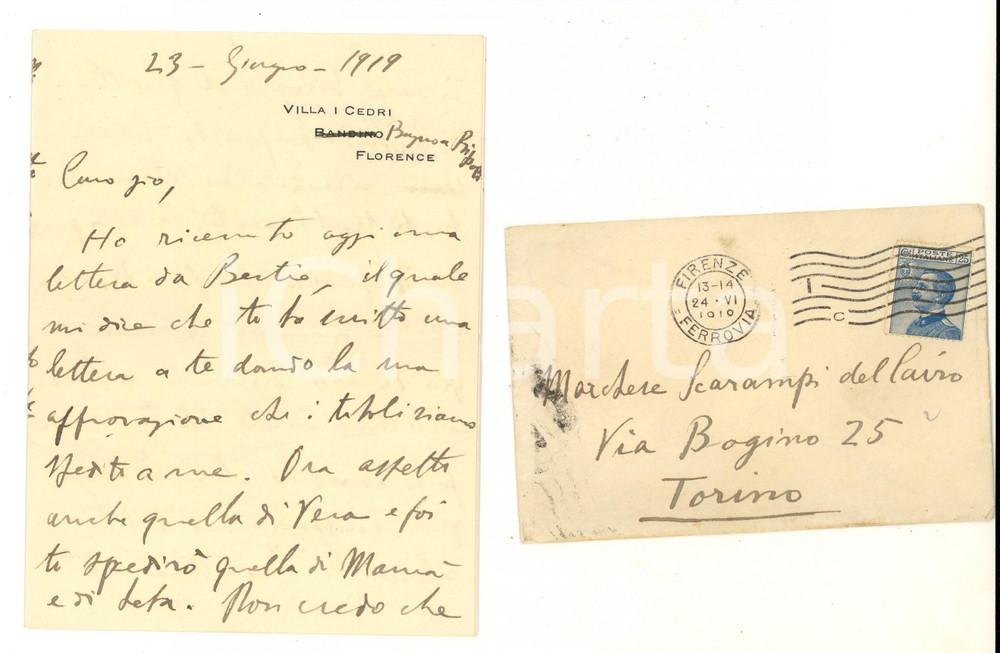 23 - Giugno - 1919
VILLA I CEDRI
BANDINO Bagno a Ripoli
FLORENCE
Caro zio,
Ho ricevuto oggi una
lettera da Bertie, il quale
mi dice che ti ha scritto una
lettera a te dando la sua
approvazione che i titoli siano
spediti a me. Ora aspetto
anche quella di Vera e poi
ti spedirò quella di Mamà
e di Leta. Non credo che
FIRENZE
13-14
24·VI
1919
FERROVIA
I
C
POSTE
25
Marchese Scarampi del Cairo
Via Bogino 25
Torino
iCharta